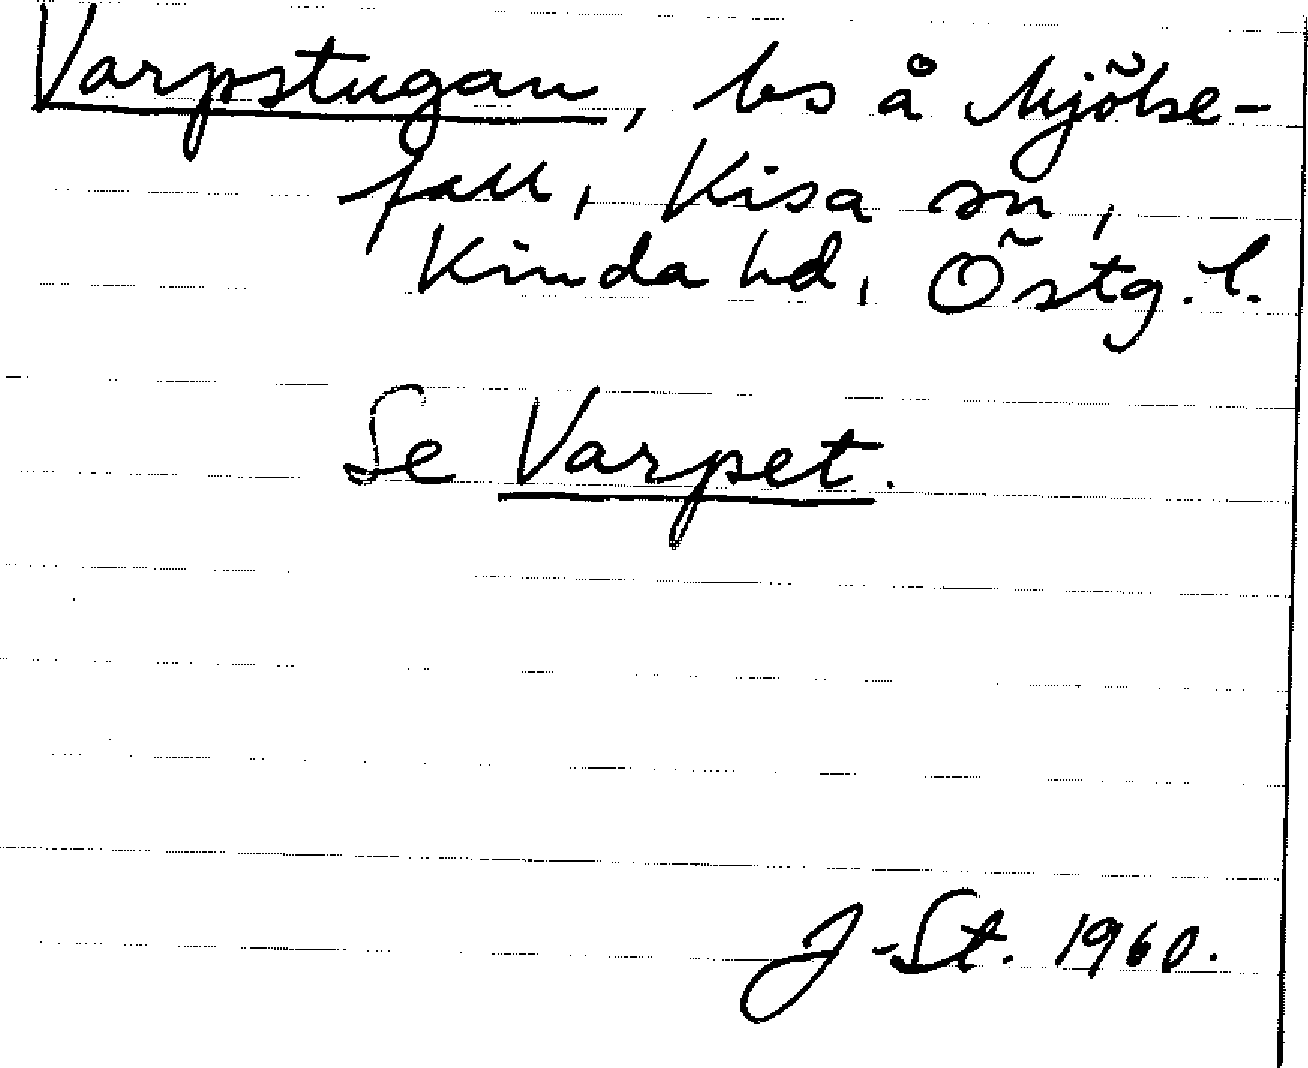 Varpstugan, bs å Mjölse-
fall, Kisa sn,
Kinda hd, Östg. l.
Se Varpet.
J-St. 1960.